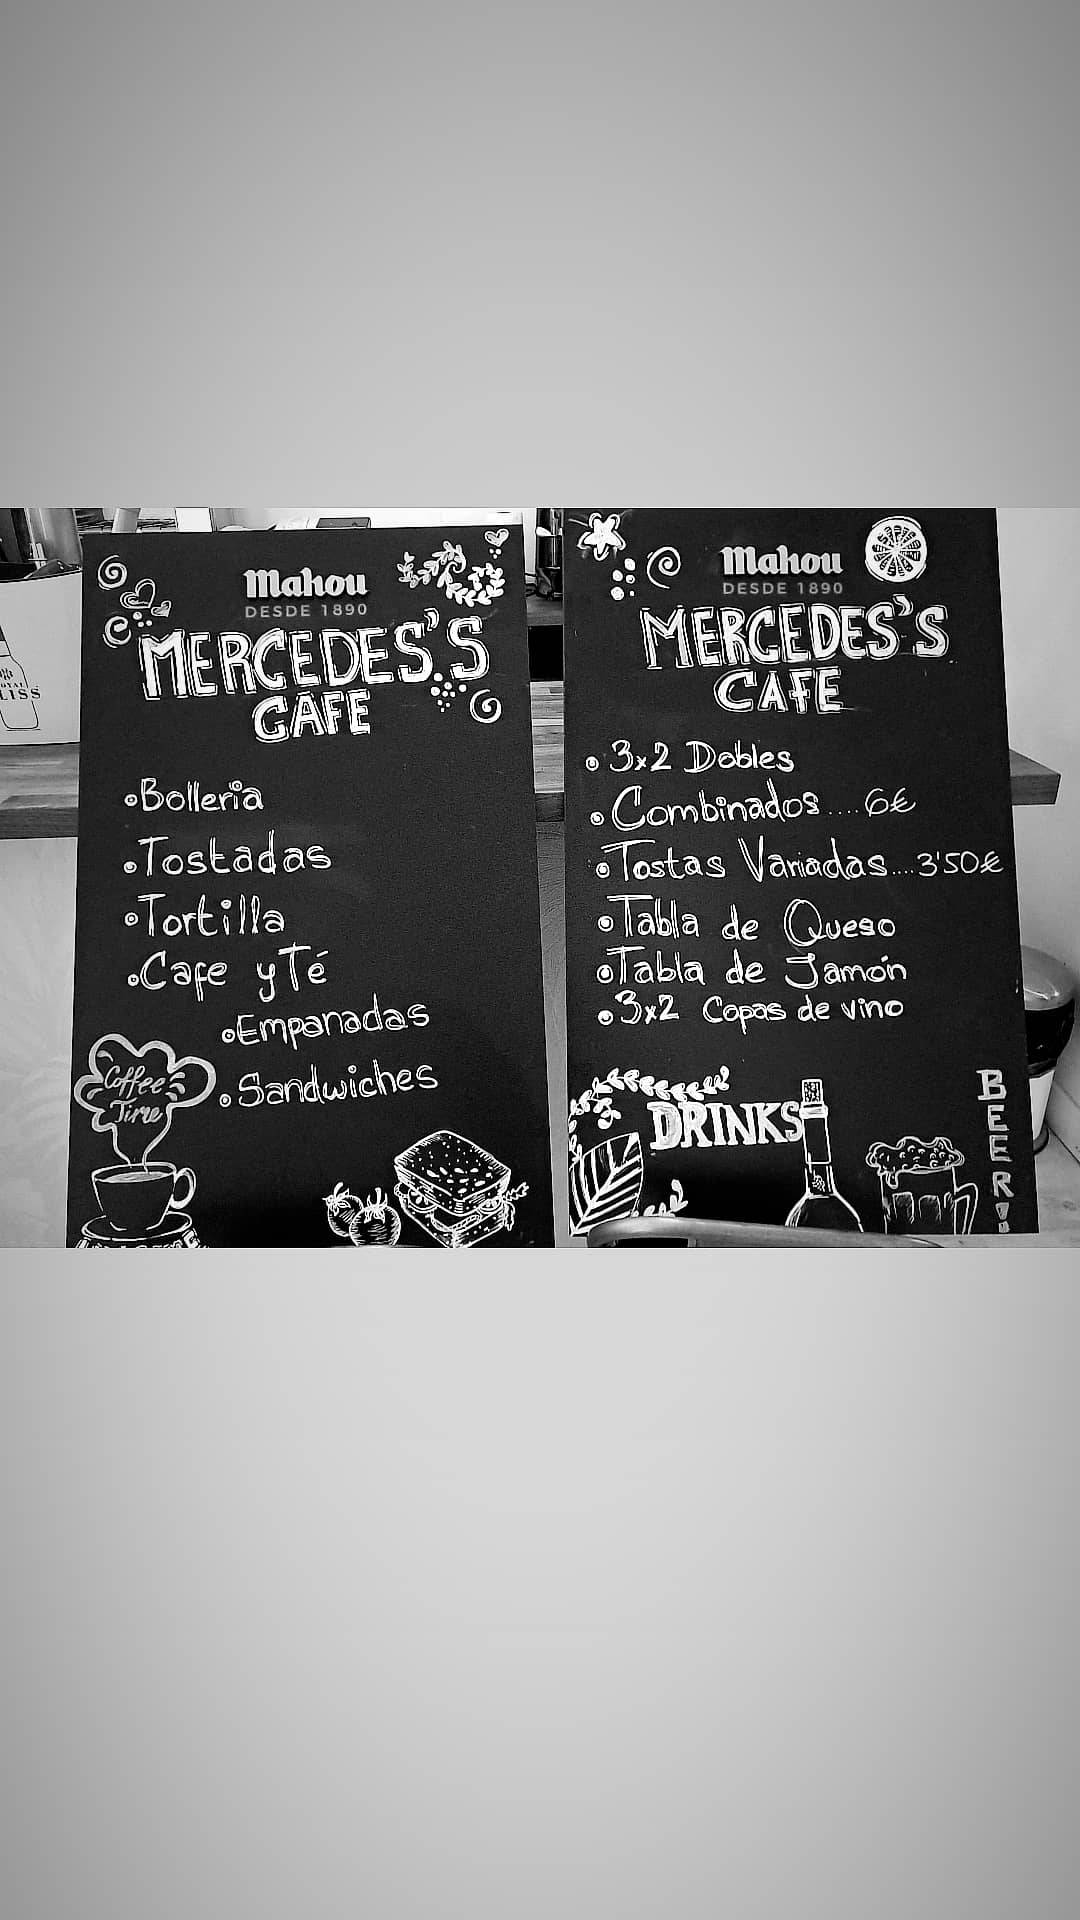 Mahou
DESDE 1890
MERCEDES'S
CAFE
Bolleria
Tostadas
Tortilla
Cafe y Té
Empanadas
Sandwiches
Coffee
Time
Mahou
DESDE 1890
MERCEDES'S
CAFE
3x2 Dobles
Combinados....6€
Tostas Variadas....3'50€
Tabla de Queso
Tabla de Jamón
3x2 Copas de vino
DRINKS
BEER!